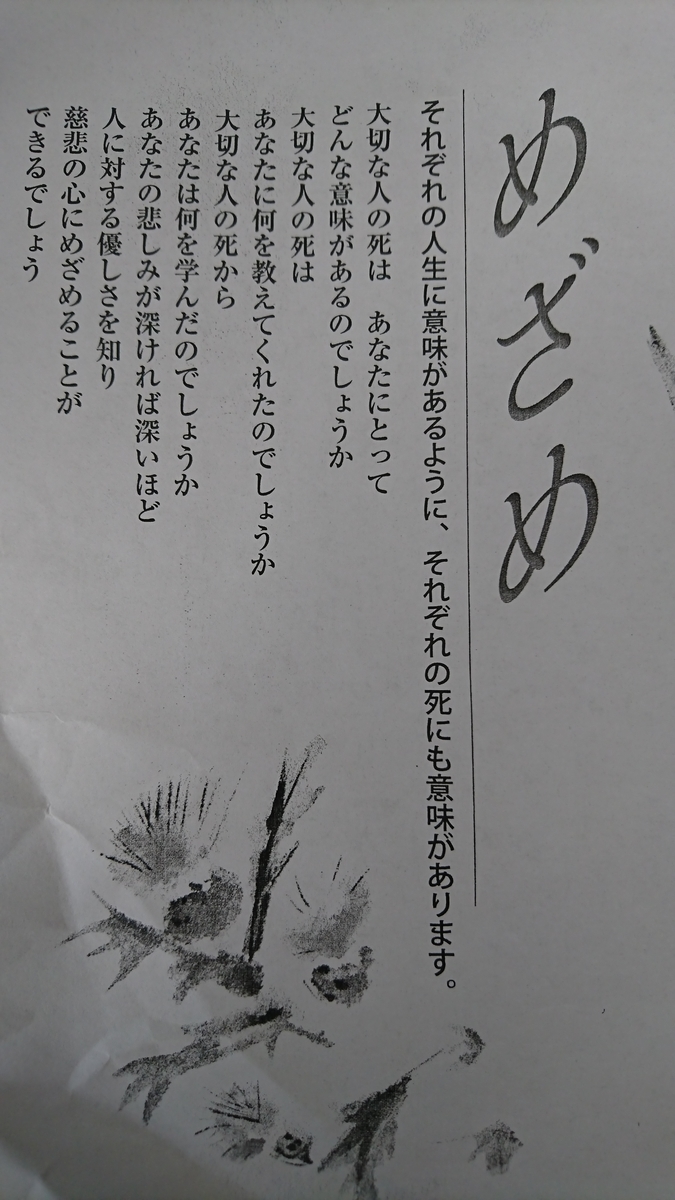 めざめ
それぞれの人生に意味があるように、それぞれの死にも意味があります。
大切な人の死は　あなたにとって
どんな意味があるのでしょうか
大切な人の死は
あなたに何を教えてくれたのでしょうか
大切な人の死から
あなたは何を学んだのでしょうか
あなたの悲しみが深ければ深いほど
人に対する優しさを知り
慈悲の心にめざめることが
できるでしょう